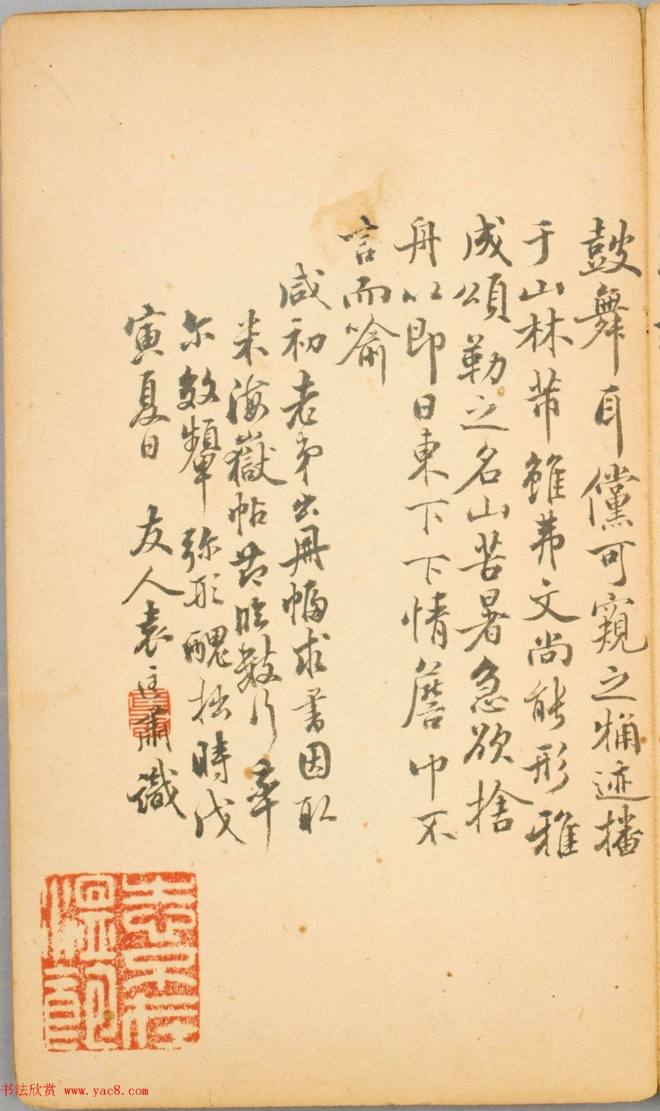 鼓舞耳儻可窺之牖迹播
于山林芾雖弗文尚能形雅
成頌勒之名山苦暑急欲捨
舟以即日東下下情詹巾不
言而喻
咸初老弟出冊幅求書因取
米海嶽帖數行率
尔效顰弥形醜拙時戊
寅夏日 友人袁匡肅識
书法欣赏 www.yac8.com